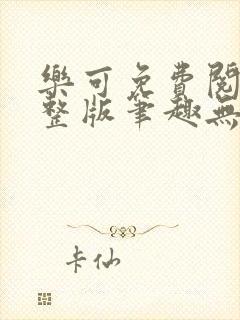 樂可免費閱
整版筆趣無
卡仙